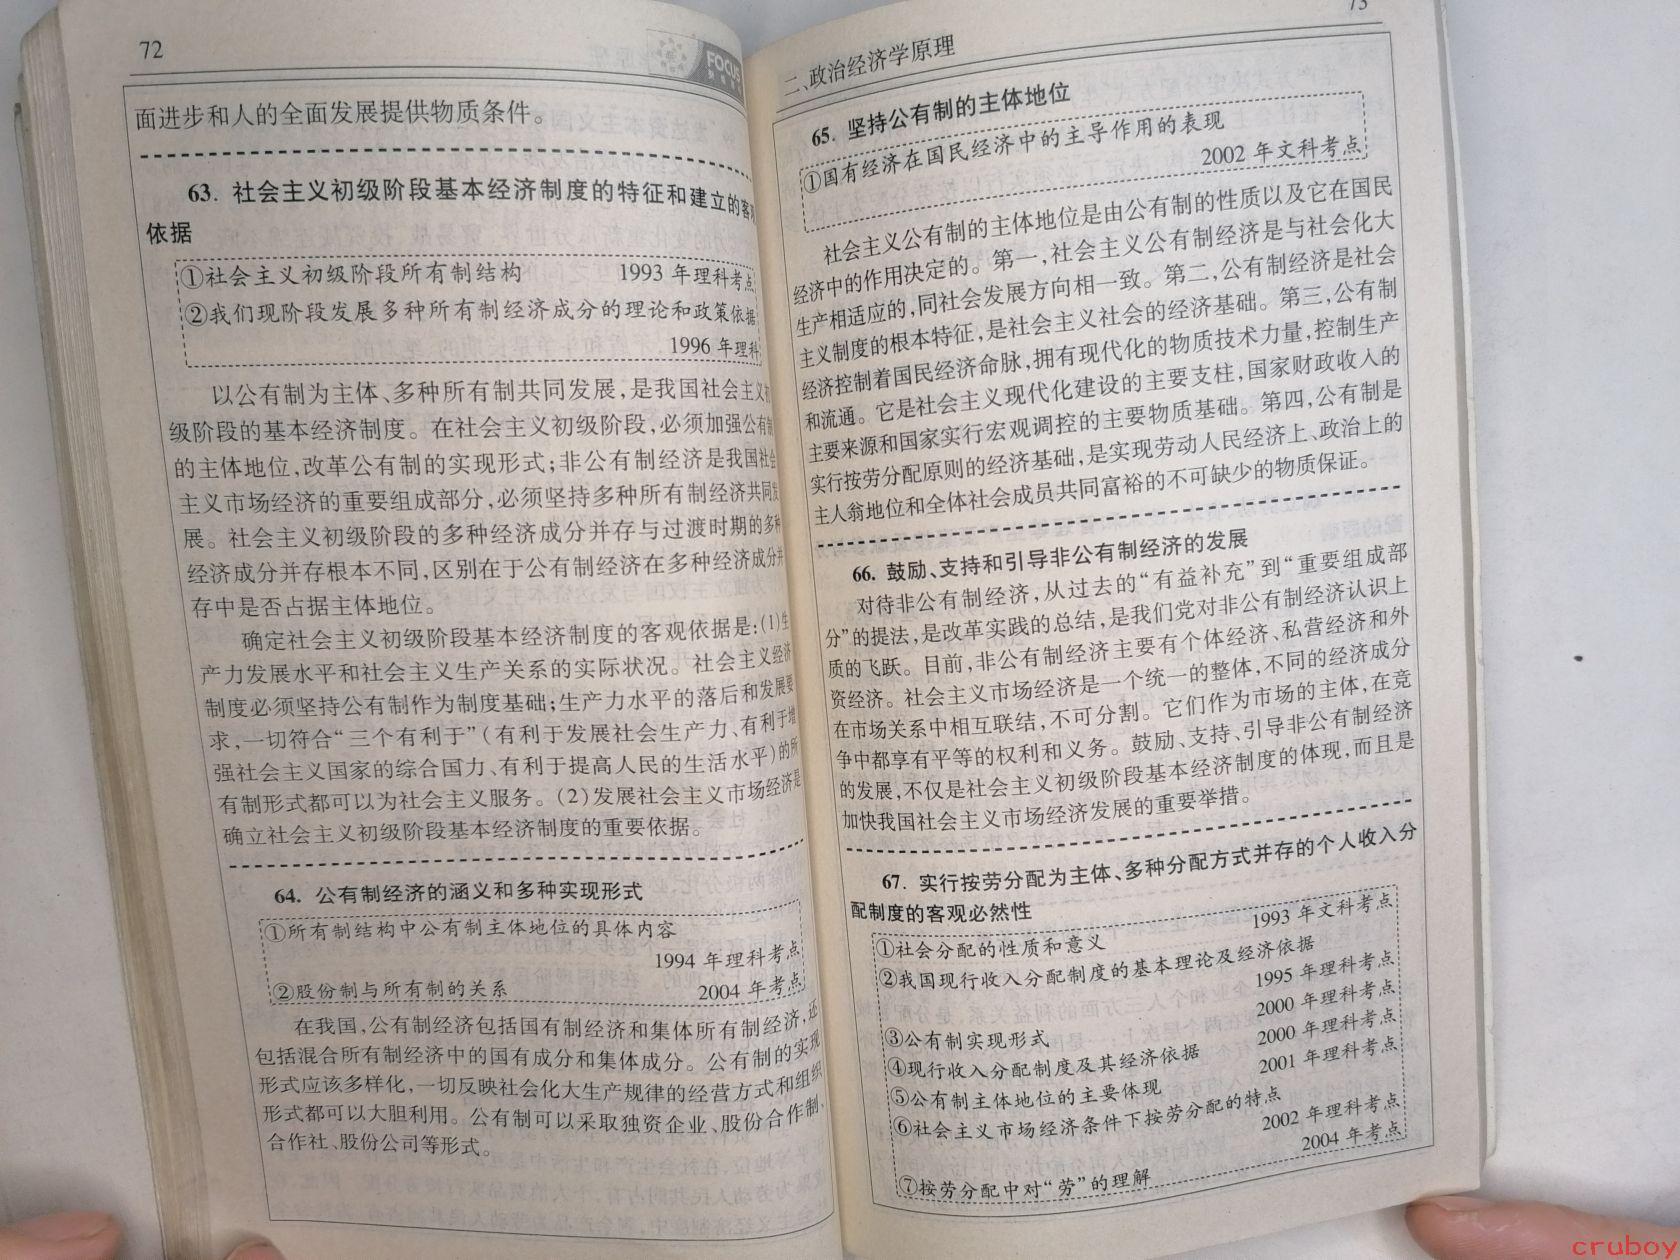 72
FOCUS
面进步和人的全面发展提供物质条件。
63. 社会主义初级阶段基本经济制度的特征和建立的客观
依据
①社会主义初级阶段所有制结构 1993 年理科考点
②我们现阶段发展多种所有制经济成分的理论和政策依据
1996 年理科
以公有制为主体、多种所有制共同发展,是我国社会主义初
级阶段的基本经济制度。在社会主义初级阶段,必须加强公有制
的主体地位,改革公有制的实现形式;非公有制经济是我国社会
主义市场经济的重要组成部分,必须坚持多种所有制经济共同发
展。社会主义初级阶段的多种经济成分并存与过渡时期的多种
经济成分并存根本不同,区别在于公有制经济在多种经济成分并
存中是否占据主体地位。
确定社会主义初级阶段基本经济制度的客观依据是:(1)生
产力发展水平和社会主义生产关系的实际状况。社会主义经济
制度必须坚持公有制作为制度基础;生产力水平的落后和发展要
求,一切符合“三个有利于”(有利于发展社会生产力、有利于增
强社会主义国家的综合国力、有利于提高人民的生活水平)的所
有制形式都可以为社会主义服务。(2)发展社会主义市场经济是
确立社会主义初级阶段基本经济制度的重要依据。
64. 公有制经济的涵义和多种实现形式
①所有制结构中公有制主体地位的具体内容
1994 年理科考点
②股份制与所有制的关系 2004 年考点
在我国,公有制经济包括国有制经济和集体所有制经济,还
包括混合所有制经济中的国有成分和集体成分。公有制的实现
形式应该多样化,一切反映社会化大生产规律的经营方式和组织
形式都可以大胆利用。公有制可以采取独资企业、股份合作制、
合作社、股份公司等形式。
73
二、政治经济学原理
65. 坚持公有制的主体地位
①国有经济在国民经济中的主导作用的表现
2002 年文科考点
社会主义公有制的主体地位是由公有制的性质以及它在国民
经济中的作用决定的。第一,社会主义公有制经济是与社会化大
生产相适应的,同社会发展方向相一致。第二,公有制经济是社会
主义制度的根本特征,是社会主义社会的经济基础。第三,公有制
经济控制着国民经济命脉,拥有现代化的物质技术力量,控制生产
和流通。它是社会主义现代化建设的主要支柱,国家财政收入的
主要来源和国家实行宏观调控的主要物质基础。第四,公有制是
实行按劳分配原则的经济基础,是实现劳动人民经济上、政治上的
主人翁地位和全体社会成员共同富裕的不可缺少的物质保证。
66. 鼓励、支持和引导非公有制经济的发展
对待非公有制经济,从过去的“有益补充”到“重要组成部
分”的提法,是改革实践的总结,是我们党对非公有制经济认识上
质的飞跃。目前,非公有制经济主要有个体经济、私营经济和外
资经济。社会主义市场经济是一个统一的整体,不同的经济成分
在市场关系中相互联结,不可分割。它们作为市场的主体,在竞
争中都享有平等的权利和义务。鼓励、支持、引导非公有制经济
的发展,不仅是社会主义初级阶段基本经济制度的体现,而且是
加快我国社会主义市场经济发展的重要举措。
67. 实行按劳分配为主体、多种分配方式并存的个人收入分
配制度的客观必然性
①社会分配的性质和意义 1993 年文科考点
②我国现行收入分配制度的基本理论及经济依据
1995 年理科考点
③公有制实现形式 2000 年理科考点
④现行收入分配制度及其经济依据 2000 年理科考点
⑤公有制主体地位的主要体现 2001 年理科考点
⑥社会主义市场经济条件下按劳分配的特点
2002 年理科考点
⑦按劳分配中对“劳”的理解 2004 年考点
cruboy